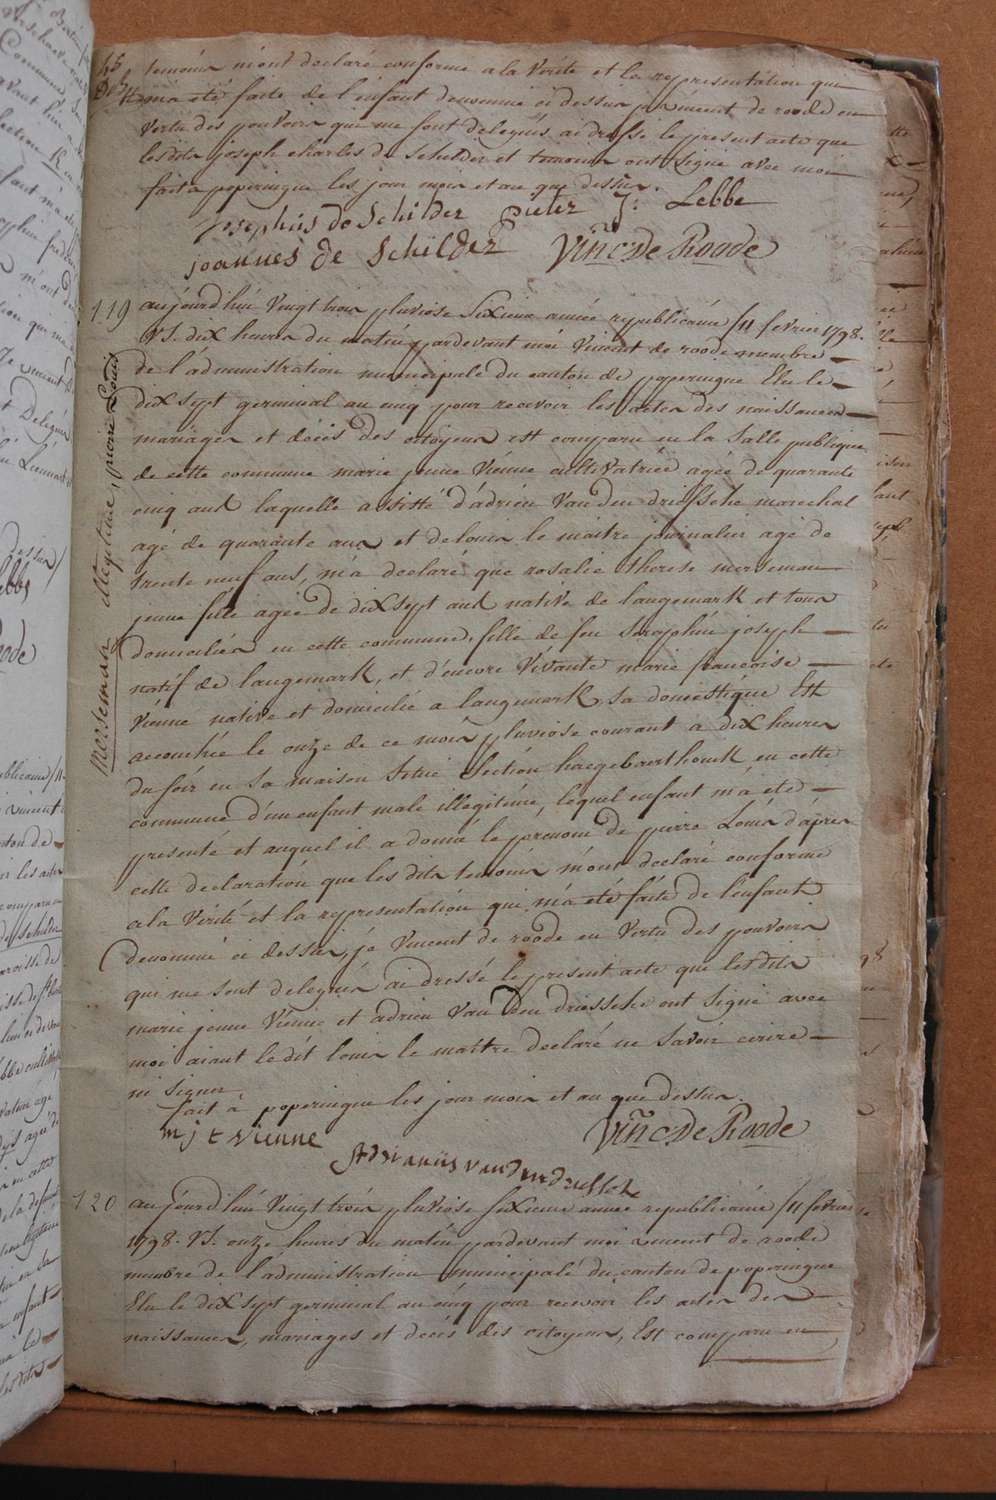 temoins m'ont declaré conforme a la verité et la representation qui
m'a été faite de l'enfant denommé ci dessus je vincent de roode en
vertu des pouvoirs que me sont delegués, ai dressé le present acte que
lesdits joseph charles de schilder et temoins ont signé avec moi
fait a poperingue les jour mois et an que dessus.
josephus de Schilder pieter J: Lebbe
joannes de Schilder Vinc: De Roode
119 aujourd'hui vingt trois pluviose sixieme année republicaine /11 fevrier 1798.
VS. dix heures du matin pardevant moi vincent de roode membre
de l'administration municipale du canton de poperingue Elu le
dix sept germinal an cinq pour recevoir les actes des naissances
mariages et décès des citoyens est comparu en la salle publique
de cette commune marie jenne vienne cultivatrice agée de quarante
cinq ans laquelle assisté d'adrien van den driessche marechal
agé de quarante ans et de louis le maitre journalier agé de
trente neuf ans, m'a declaré que rosalie therese merseman
jeune fille agée de dix sept ans native de langemark et tous
domiciliés en cette commune, fille de feu seraphin joseph
natif de langemark, et d'encore vivante marie françoise
vienne native et domicilié a langemark sa domestique Est
accouchée le onze de ce mois pluviose courant a dix heures
du soir en sa maison situé section haegebaerthouck en cette
commune d'un enfant male illegitime, lequel enfant m'a été
presenté et auquel il a donné le prenom de pierre Louis d'après
cette declaration que les dits temoins m'ont declaré conforme
a la verité et la representation qui m'a été faite de l'enfant
denommé ci dessus, je vincent de roode en vertu des pouvoirs
qui me sont delegués ai dressé le present acte que lesdits
marie jenne vienne et adrien van den driessche ont signé avec
moi aiant le dit louis le maitre declaré ne savoir ecrire
ni signer
fait à poperingue les jour mois et an que dessus.
mj t vienne Vinc: De Roode
Adrianus vanden driessche
merseman illegitime, pierre Louis
120 aujourd'hui vingt trois pluviose sixieme année republicaine /11 fevrier
1798. VS. onze heures du matin pardevant moi vincent de roode
membre de l'administration municipale du canton de poperingue
Elu le dix sept germinal an cinq pour recevoir les actes des
naissances, mariages et decès des citoyens, Est comparu en